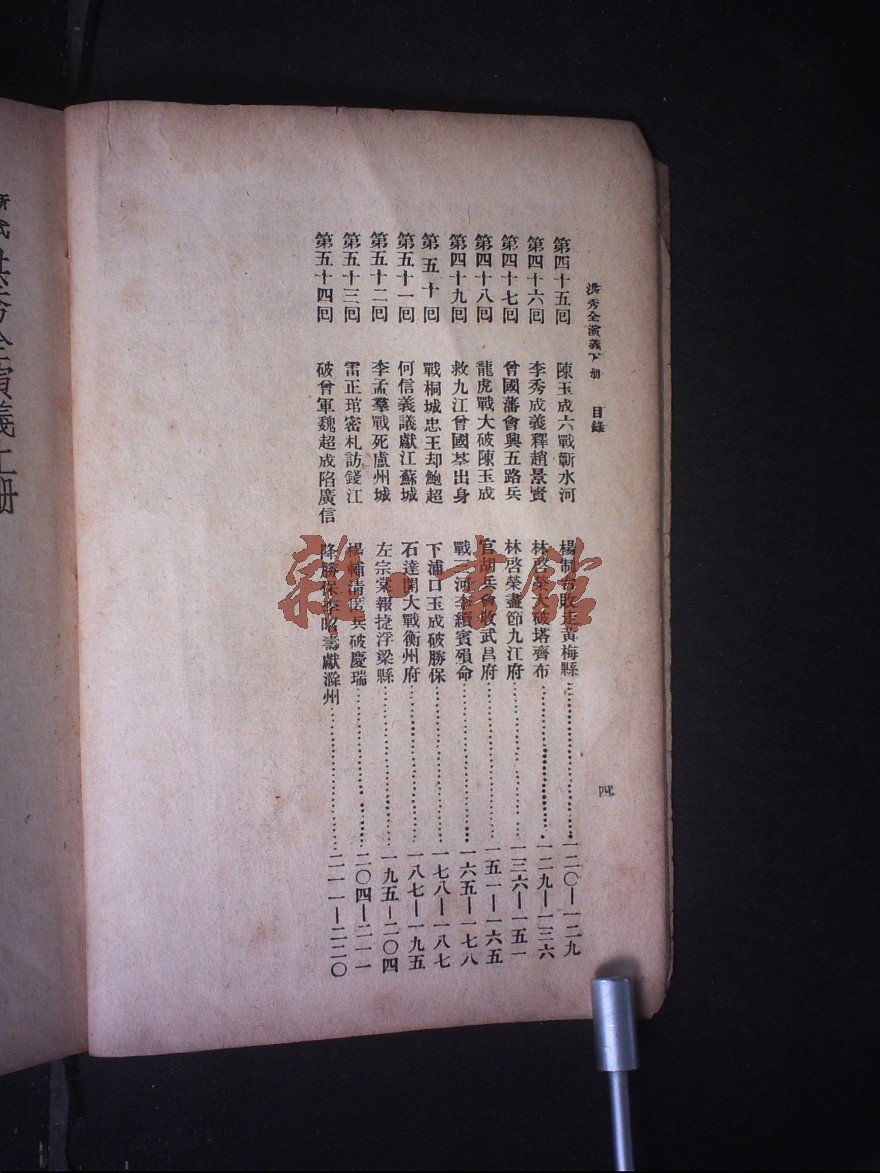 洪秀全演義下册　目錄　四
第四十五回　陳玉成六戰蘄水河　楊制台敗走黃梅縣……一二〇—一二九
第四十六回　李秀成義釋趙景賢　林啓榮大破塔齊布……一二九—一三六
第四十七回　曾國藩會興五路兵　林啓榮盡節九江府……一三六—一五一
第四十八回　龍虎戰大破陳玉成　官胡兵會收武昌府……一五一—一六五
第四十九回　救九江曾國荃出身　戰三河李續賓殞命……一六五—一七八
第五十回　戰桐城忠王却鮑超　下浦口玉成破勝保……一七八—一八七
第五十一回　何信義議獻江蘇城　石達開大戰衡州府……一八七—一九五
第五十二回　李孟羣戰死盧州城　左宗棠報捷浮梁縣……一九五—二〇四
第五十三回　雷正琯密札訪錢江　楊輔清偃兵破慶瑞……二〇四—二一一
第五十四回　破曾軍魏超成陷廣信　降勝保李昭壽獻滁州……二一一—二二〇
洪秀全演義上册
雜·書館